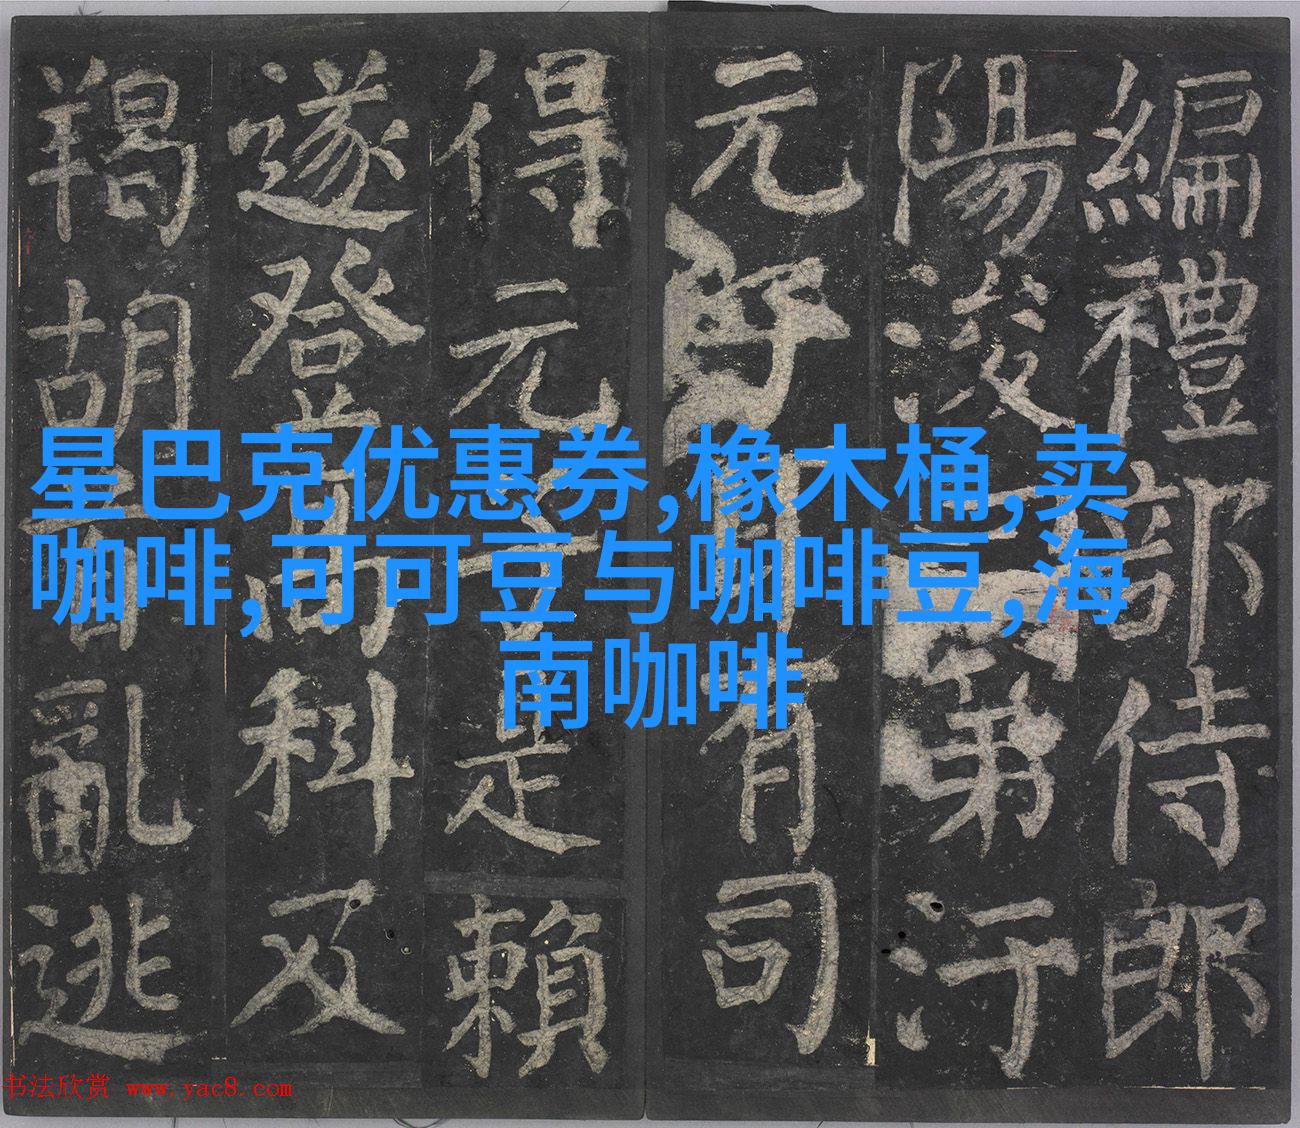 編禮部侍郎
陽浚
第汙
元好
有司
得元
是賴
遂登高科及
羯胡
亂逃
星巴克优惠券,橡木桶,卖
咖啡,可可豆与咖啡豆,海
南咖啡
书法欣赏 www.yac8.com